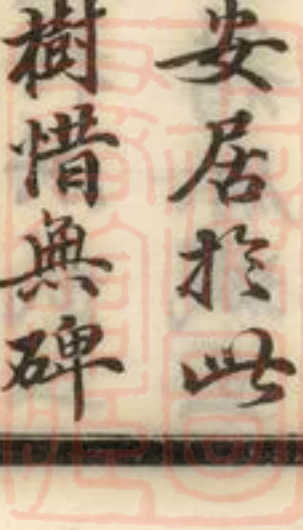 安居於此
樹惜無碑